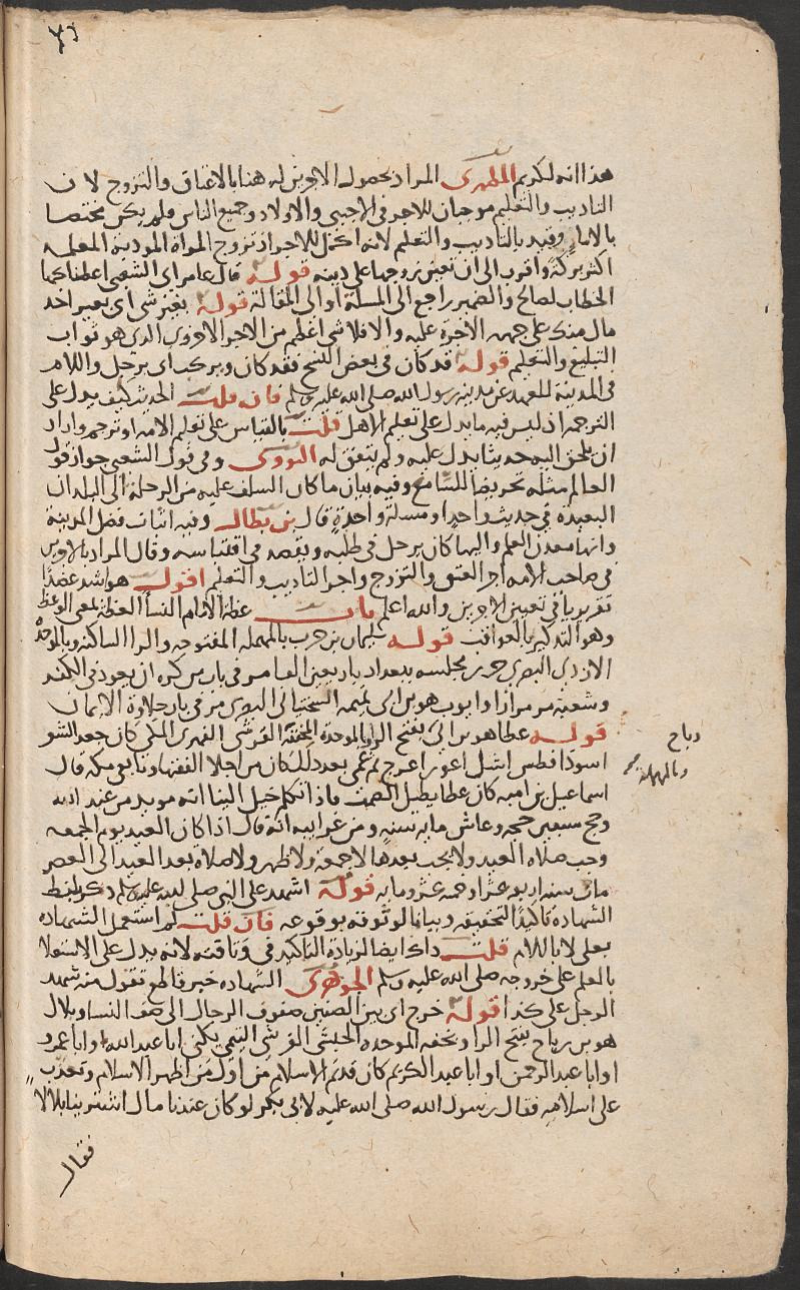 هذا انه لكريم المظهرى المراد بحصول الاجرين له هنا بالاعتاق والتزوج لان
التاديب والتعليم موجبان للاجر فى الاجنبى والاولاد وجميع الناس ولم يكن مختصا
بالاماء وقيد بالتاديب والتعليم لانه اكمل للاجر اذ تزوج المراة المودبة المعلمه
اكثر بركة واقرب الى ان تعين زوجها على دينه قوله قال عامر اى الشعبى اعطيناكها
الخطاب لصالح والضمير راجع الى المسلة او الى المقالة قوله بغير شى اى بغير اخذ
مال منك على جهه الاجرة عليه والا فلا شى اعظم من الاجر الاخروى الذى هو ثواب
التبليغ والتعليم قوله قد كان فى بعض النسخ فقد كان ويركب اى يرحل واللام
فى المدينة للعهد عن مدينه رسول الله صلى الله عليه وسلم فان قلت الحديث كيف يدل على
الترجمه اذ ليس فيه ما يدل على تعليم الاهل قلت بالقياس على تعليم الامه او ترجم واراد
ان يلحق اليه حديثا يدل عليه ولم يتفق له النووى وفى قول الشعبى جواز قول
العالم مثله تحريضا للسامع وفيه بيان ما كان السلف عليه من الرحلة الى البلدان
البعيدة فى حديث واحد او مسلة واحدة قال بن بطال وفيه اثبات فضل المدينة
وانها معدن العلم واليها كان يرحل فى طلبه ويقصد فى اقتباسه وقال المراد بالاجرين
فى صاحب الامه اجر العتق والتزوج واجر التاديب والتعليم اقول هو اشد عضدا
تقريريا فى تعيين الاجرين والله اعلم باب عظة الامام النسا العظة بمعنى الوعظ
وهو التذكير بالعواقب قوله سليمان بن حرب بالمهمله المفتوحه والرا الساكنه وبالموحدة
الازدى البصرى حزر مجلسه ببغداد باربعين الفا مر فى باب من كره ان يعود فى الكفر
وشعبة مر مرارا وايوب هو بن ابى تميمه السختيانى البصرى مر فى باب حلاوة الايمان
قوله عطا هو بن ابى بفتح الرا بالموحدة المخففة القرشى الفهرى المكى كان جعد الشعر
اسود افطس اشل اعور اعرج ثم عمى بعد ذلك كان من اجلا الفقها وتابعى مكة قال
اسماعيل بن اميه كان عطا يطيل الصمت فاذا تكلم خيل الينا انه مويد من عند الله
وحج سبعين حجة وعاش مايه سنه ومن غرايبه انه قال اذا كان العيد يوم الجمعه
وجب صلاة العيد ولا يجب بعدها لا جمعة ولا ظهر ولا صلاة بعد العيد الى العصر
مات سنة اربع عشر او خمسه عشر ومايه قوله اشهد على النبى صلى الله عليه وسلم ذكر بلفظ
الشهادة تاكيدا لتحقيقه وبيانا لوثوقه بوقوعه فان قلت لم استعمل الشهاده
بعلى لا باللام قلت ذاك ايضا لزيادة التاكيد فى وثاقته لانه يدل على الاستعلا
بالعلم على خروجه صلى الله عليه وسلم الجوهرى الشهاده خبر قاطع تقول منه شهد
الرجل على كذا قوله خرج اى بين الصفين صفوف الرجال الى صف النسا وبلال
هو بن رباح بفتح الرا وتخفه الموحدة الحبشى القرشى التيمى يكنى ابا عبدالله او ابا عمرو
او ابا عبد الرحمن او ابا عبد الكريم كان قديم الاسلام من اول من اظهر الاسلام وتعذب
على اسلامه فقال رسول الله صلى الله عليه لابى بكر لو كان عندنا مال اشترينا بلالا
رباح
وبالمهملة صح
فقال